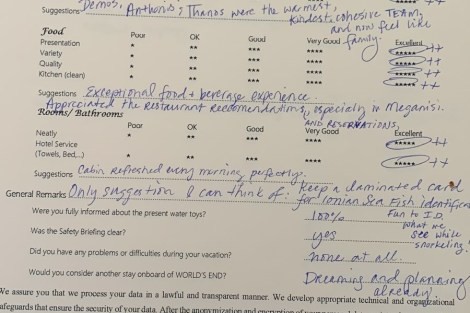 Suggestions Demos, Anthonis & Thanos were the warmest,
kindest, cohesive TEAM,
and now feel like
family.
Food Poor OK Good Very Good Excellent
Presentation * ** *** **** ***** ++
Variety * ** *** **** ***** ++
Quality * ** *** **** ***** ++
Kitchen (clean) * ** *** **** ***** ++
Suggestions Exceptional food & beverage experience.
Appreciated the restaurant recommendations, especially in Meganisi.
AND RESERVATIONS,
Rooms/ Bathrooms Poor OK Good Very Good Excellent
Neatly * ** *** **** ***** ++
Hotel Service
(Towels, Bed...) * ** *** **** ***** ++
Suggestions Cabin refreshed every morning perfectly.
General Remarks Only suggestion I can think of: keep a laminated card
for Ionian Sea Fish identifier
Were you fully informed about the present water toys? 100% Fun to I.D.
what we
see while
snorkeling.
Was the Safety Briefing clear? yes
Did you have any problems or difficulties during your vacation? none at all.
Would you consider another stay onboard of WORLD'S END? Dreaming and planning
already.
We assure you that we process your data in a lawful and transparent manner. We develop appropriate technical and organizational
safeguards that ensure the security of your data. After the anonymization and encryption of your